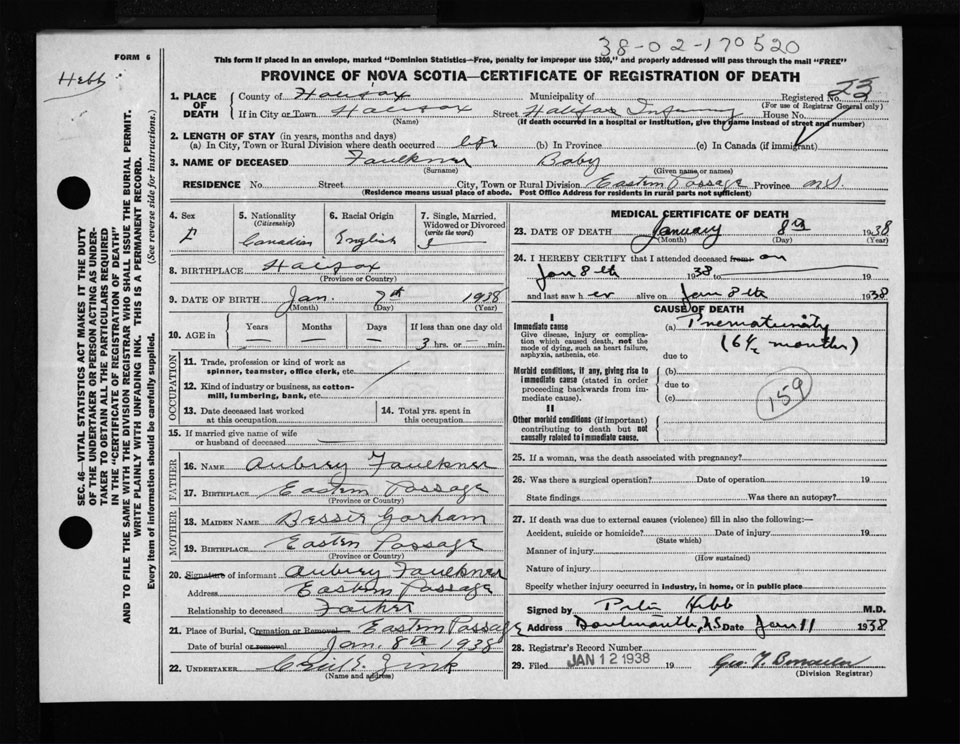 38-02-170520
FORM 6
This form if placed in an envelope, marked "Dominion Statistics—Free, penalty for improper use $300," and properly addressed will pass through the mail "FREE"
Hebb
PROVINCE OF NOVA SCOTIA—CERTIFICATE OF REGISTRATION OF DEATH
1. PLACE OF DEATH
County of Halifax Municipality of Registered No. 23
(For use of Registrar General only)
If in City or Town Halifax Street Halifax Infirmary House No.
(Name) (If death occurred in a hospital or institution, give the name instead of street and number)
2. LENGTH OF STAY (in years, months and days)
(a) In City, Town or Rural Division where death occurred life (b) In Province (c) In Canada (if immigrant)
3. NAME OF DECEASED Faulkner Baby
(Surname) (Given name or names)
RESIDENCE No. Street City, Town or Rural Division Eastern Passage Province N.S.
(Residence means usual place of abode. Post Office Address for residents in rural parts not sufficient)
4. Sex F
5. Nationality (Citizenship) Canadian
6. Racial Origin English
7. Single, Married, Widowed or Divorced (write the word)
8. BIRTHPLACE Halifax
(Province or Country)
9. DATE OF BIRTH Jan. 7th 1938
(Month) (Day) (Year)
10. AGE in Years — Months — Days — If less than one day old 3 hrs. or — min.
OCCUPATION
11. Trade, profession or kind of work as spinner, teamster, office clerk, etc.
12. Kind of industry or business, as cotton-mill, lumbering, bank, etc.
13. Date deceased last worked at this occupation
14. Total yrs. spent in this occupation
15. If married give name of wife or husband of deceased —
FATHER
16. NAME Aubrey Faulkner
17. BIRTHPLACE Eastern Passage
(Province or Country)
MOTHER
18. MAIDEN NAME Bessie Gorham
19. BIRTHPLACE Eastern Passage
(Province or Country)
20. Signature of informant Aubrey Faulkner
Address Eastern Passage
Relationship to deceased Father
21. Place of Burial, Cremation or Removal Eastern Passage
Date of burial or removal Jan. 8th 1938
22. UNDERTAKER Zink
(Name and address)
MEDICAL CERTIFICATE OF DEATH
23. DATE OF DEATH January 8th 1938
(Month) (Day) (Year)
24. I HEREBY CERTIFY that I attended deceased from on
Jan 8th 1938 to
and last saw her alive on Jan 8th 1938
CAUSE OF DEATH
I
Immediate cause
Give disease, injury or complication which caused death, not the mode of dying, such as heart failure, asphyxia, asthenia, etc.
(a) Prematurity
(6½ months)
due to
Morbid conditions, if any, giving rise to immediate cause (stated in order proceeding backwards from immediate cause).
(b)
due to
(c)
159
II
Other morbid conditions (if important) contributing to death but not causally related to immediate cause.
25. If a woman, was the death associated with pregnancy?
26. Was there a surgical operation? Date of operation 19
State findings Was there an autopsy?
27. If death was due to external causes (violence) fill in also the following:—
Accident, suicide or homicide? Date of injury 19
(State which)
Manner of injury
(How sustained)
Nature of injury
Specify whether injury occurred in industry, in home, or in public place
Signed by Peter Hebb M.D.
Address Dartmouth, N.S Date Jan 11 1938
28. Registrar's Record Number
29. Filed JAN 12 1938 19
(Division Registrar)
SEC. 46—VITAL STATISTICS ACT MAKES IT THE DUTY
OF THE UNDERTAKER OR PERSON ACTING AS UNDER-
TAKER TO OBTAIN ALL THE PARTICULARS REQUIRED
IN THE "CERTIFICATE OF REGISTRATION OF DEATH"
AND TO FILE THE SAME WITH THE DIVISION REGISTRAR WHO SHALL ISSUE THE BURIAL PERMIT.
WRITE PLAINLY WITH UNFADING INK. THIS IS A PERMANENT RECORD.
Every item of information should be carefully supplied. (See reverse side for instructions.)